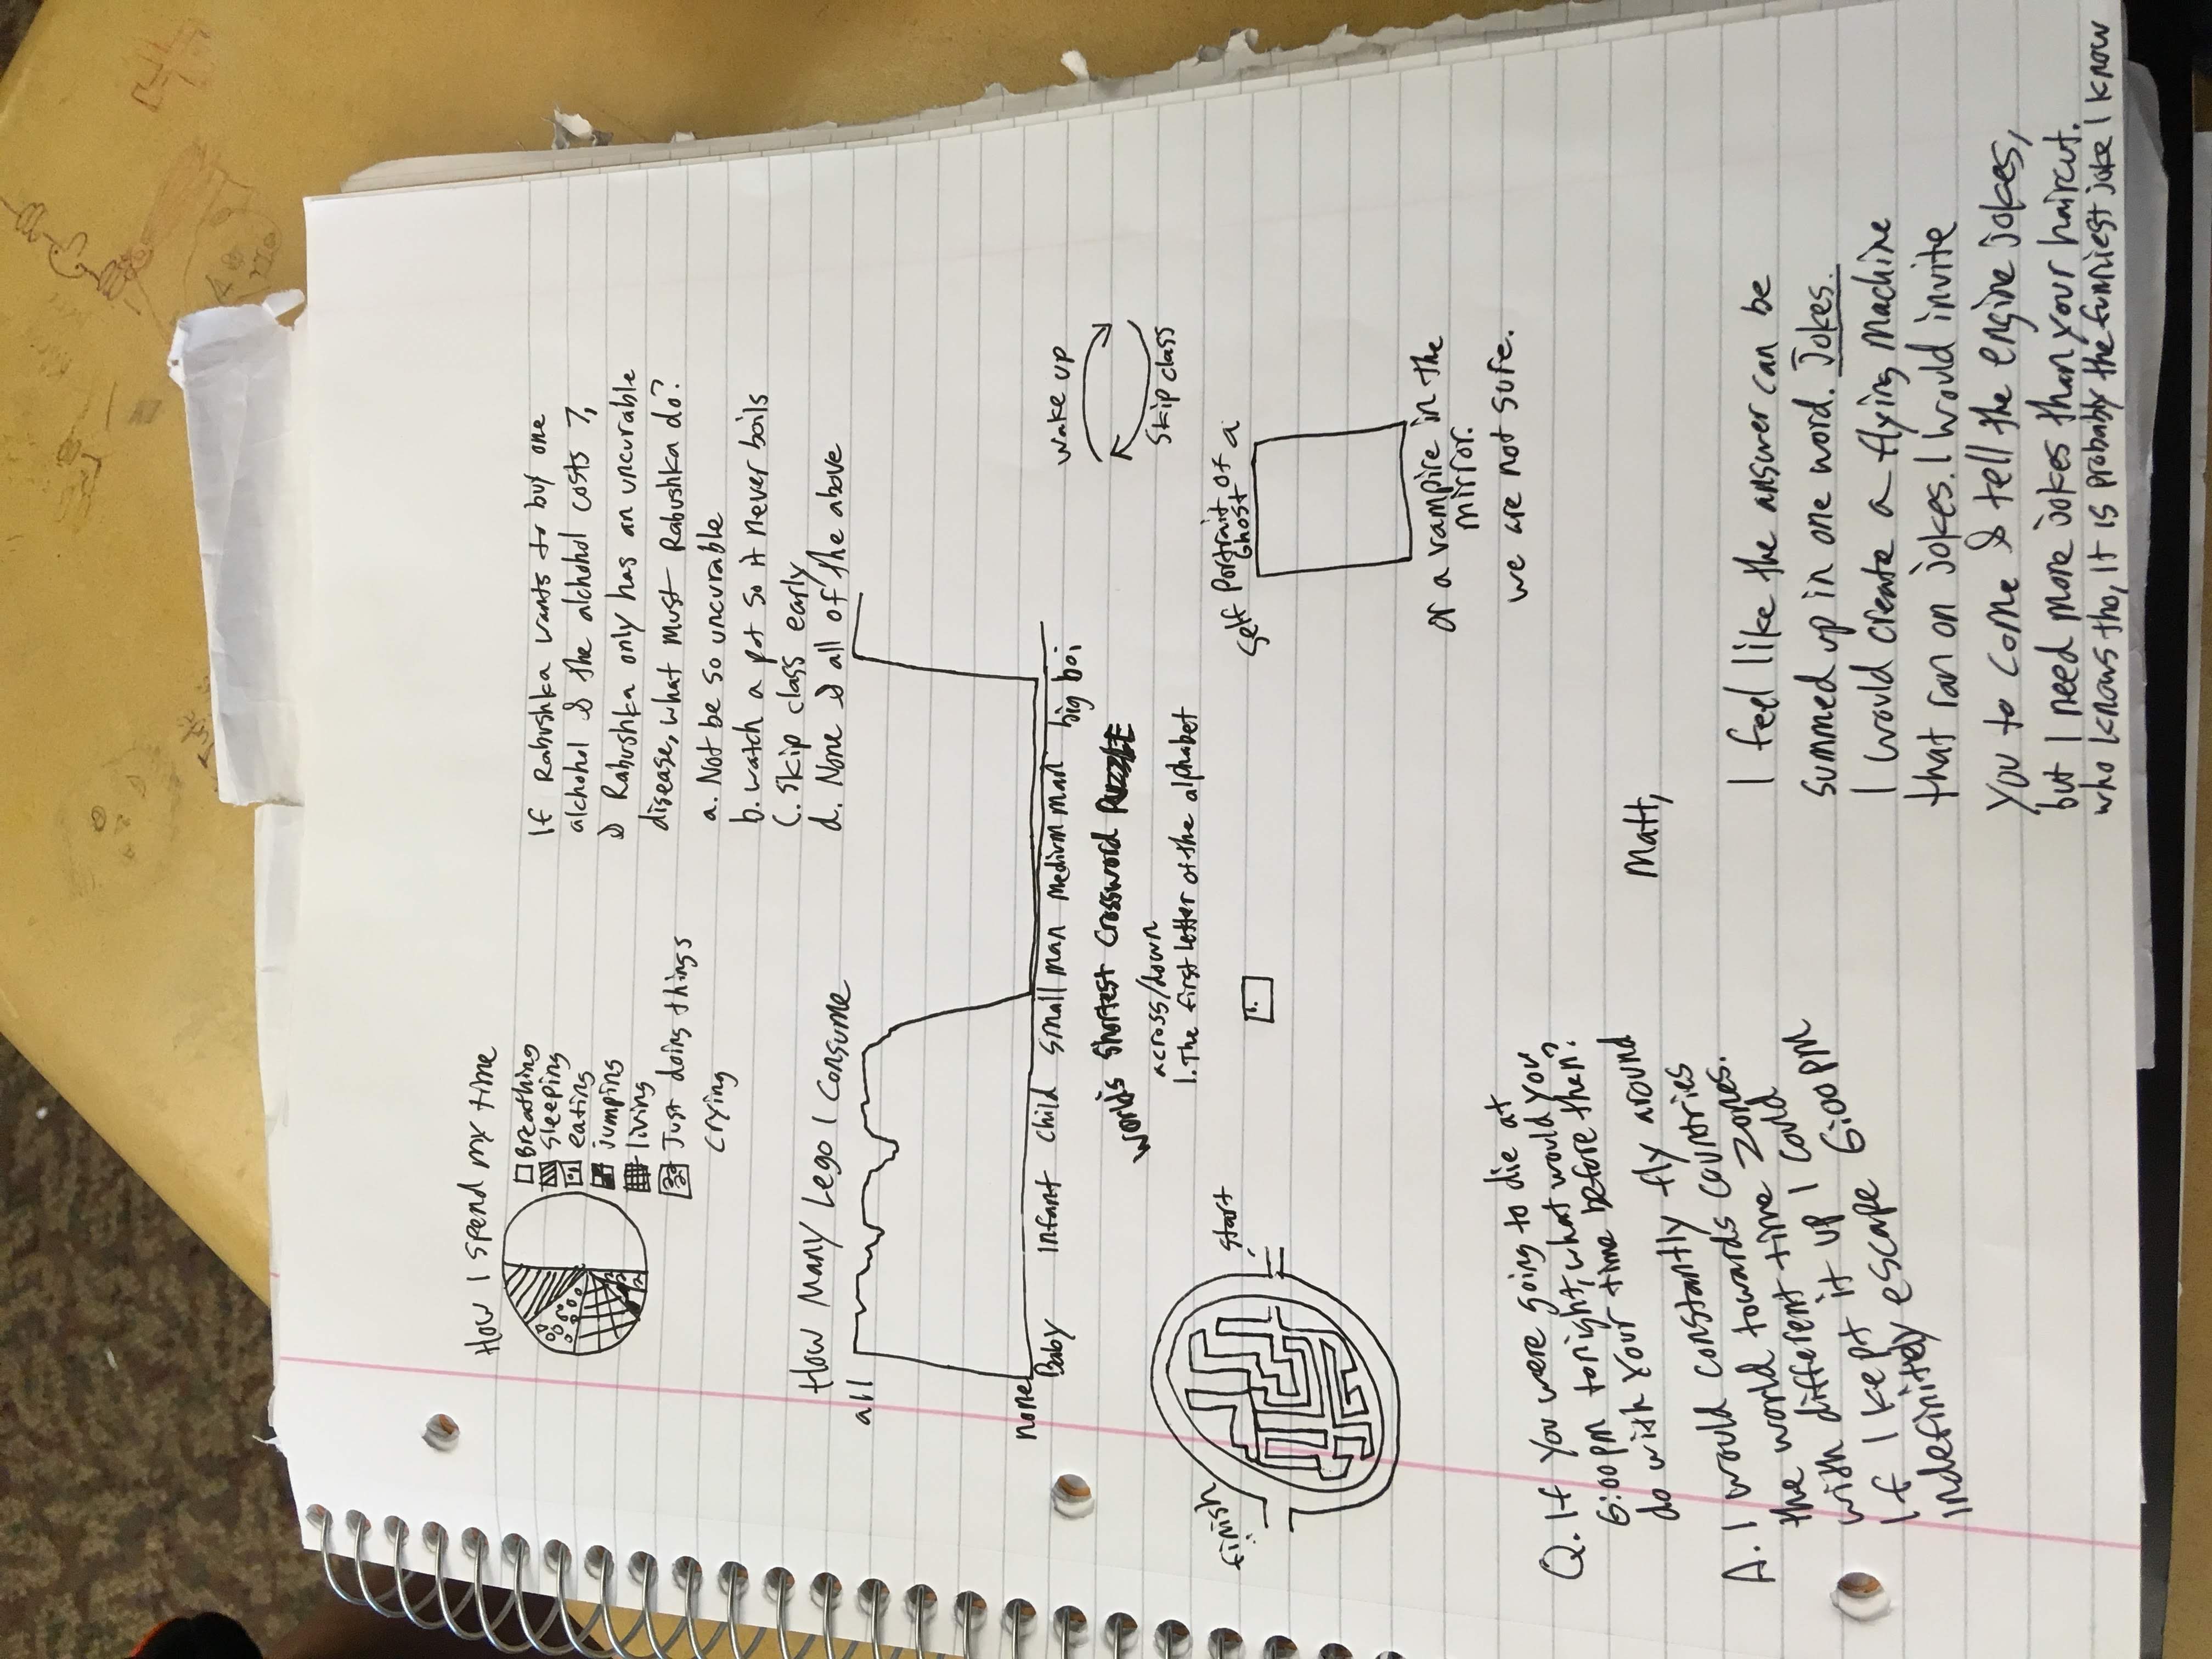 How I spend my time
Breathing
sleeping
eating
jumping
living
Just doing things
crying
If Rabushka wants to buy one
alchohol & the alchohol costs 7,
& Rabushka only has an uncurable
disease, what must Rabushka do?
a. Not be so uncurable
b. watch a pot so it never boils
c. skip class early
d. None & all of the above
How Many Lego I Consume
all
none
Baby infant child small man medium man big boi
finish
start
worlds shortest crossword Puzzle
across/down
1. The first letter of the alphabet
1.
wake up
skip class
Self Portrait of a
Ghost
or a vampire in the
mirror.
we are not sure.
Q. If you were going to die at
6:00pm tonight, what would you
do with your time before then?
A. I would constantly fly around
the world towards countries
with different time zones.
If I kept it up I could
indefinitely escape 6:00pm
Matt,
I feel like the answer can be
summed up in one word. Jokes.
I would create a flying machine
that ran on jokes. I would invite
you to come & tell the engine jokes,
but I need more jokes than your haircut.
who knows tho, it is probably the funniest joke I know